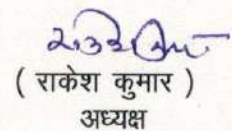 ( राकेश कुमार )
अध्यक्ष